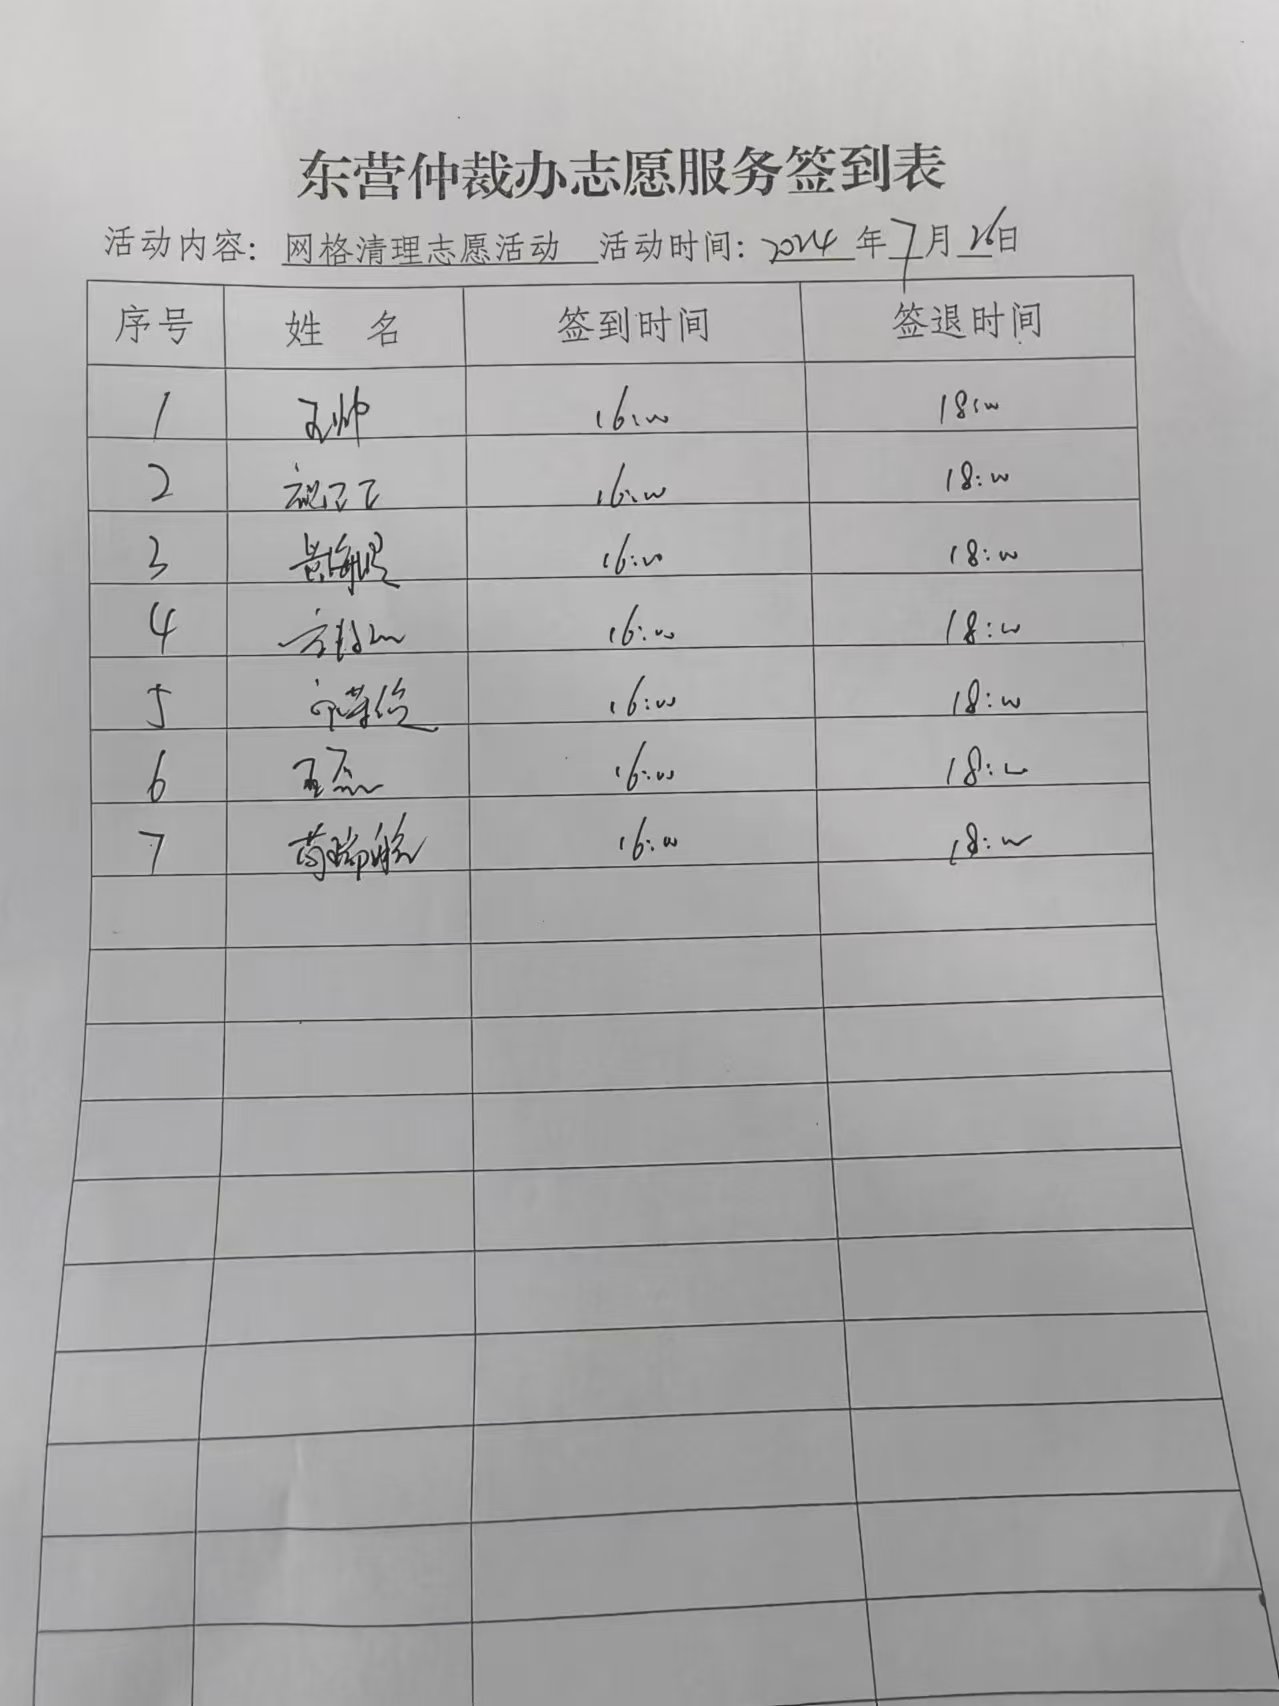 东营仲裁办志愿服务签到表
活动内容：网格清理志愿活动 活动时间：2024年7月26日
序号 姓 名 签到时间 签退时间
1 王帅 16:00 18:00
2 16:00 18:00
3 16:00 18:00
4 16:00 18:00
5 16:00 18:00
6 王磊 16:00 18:00
7 16:00 18:00